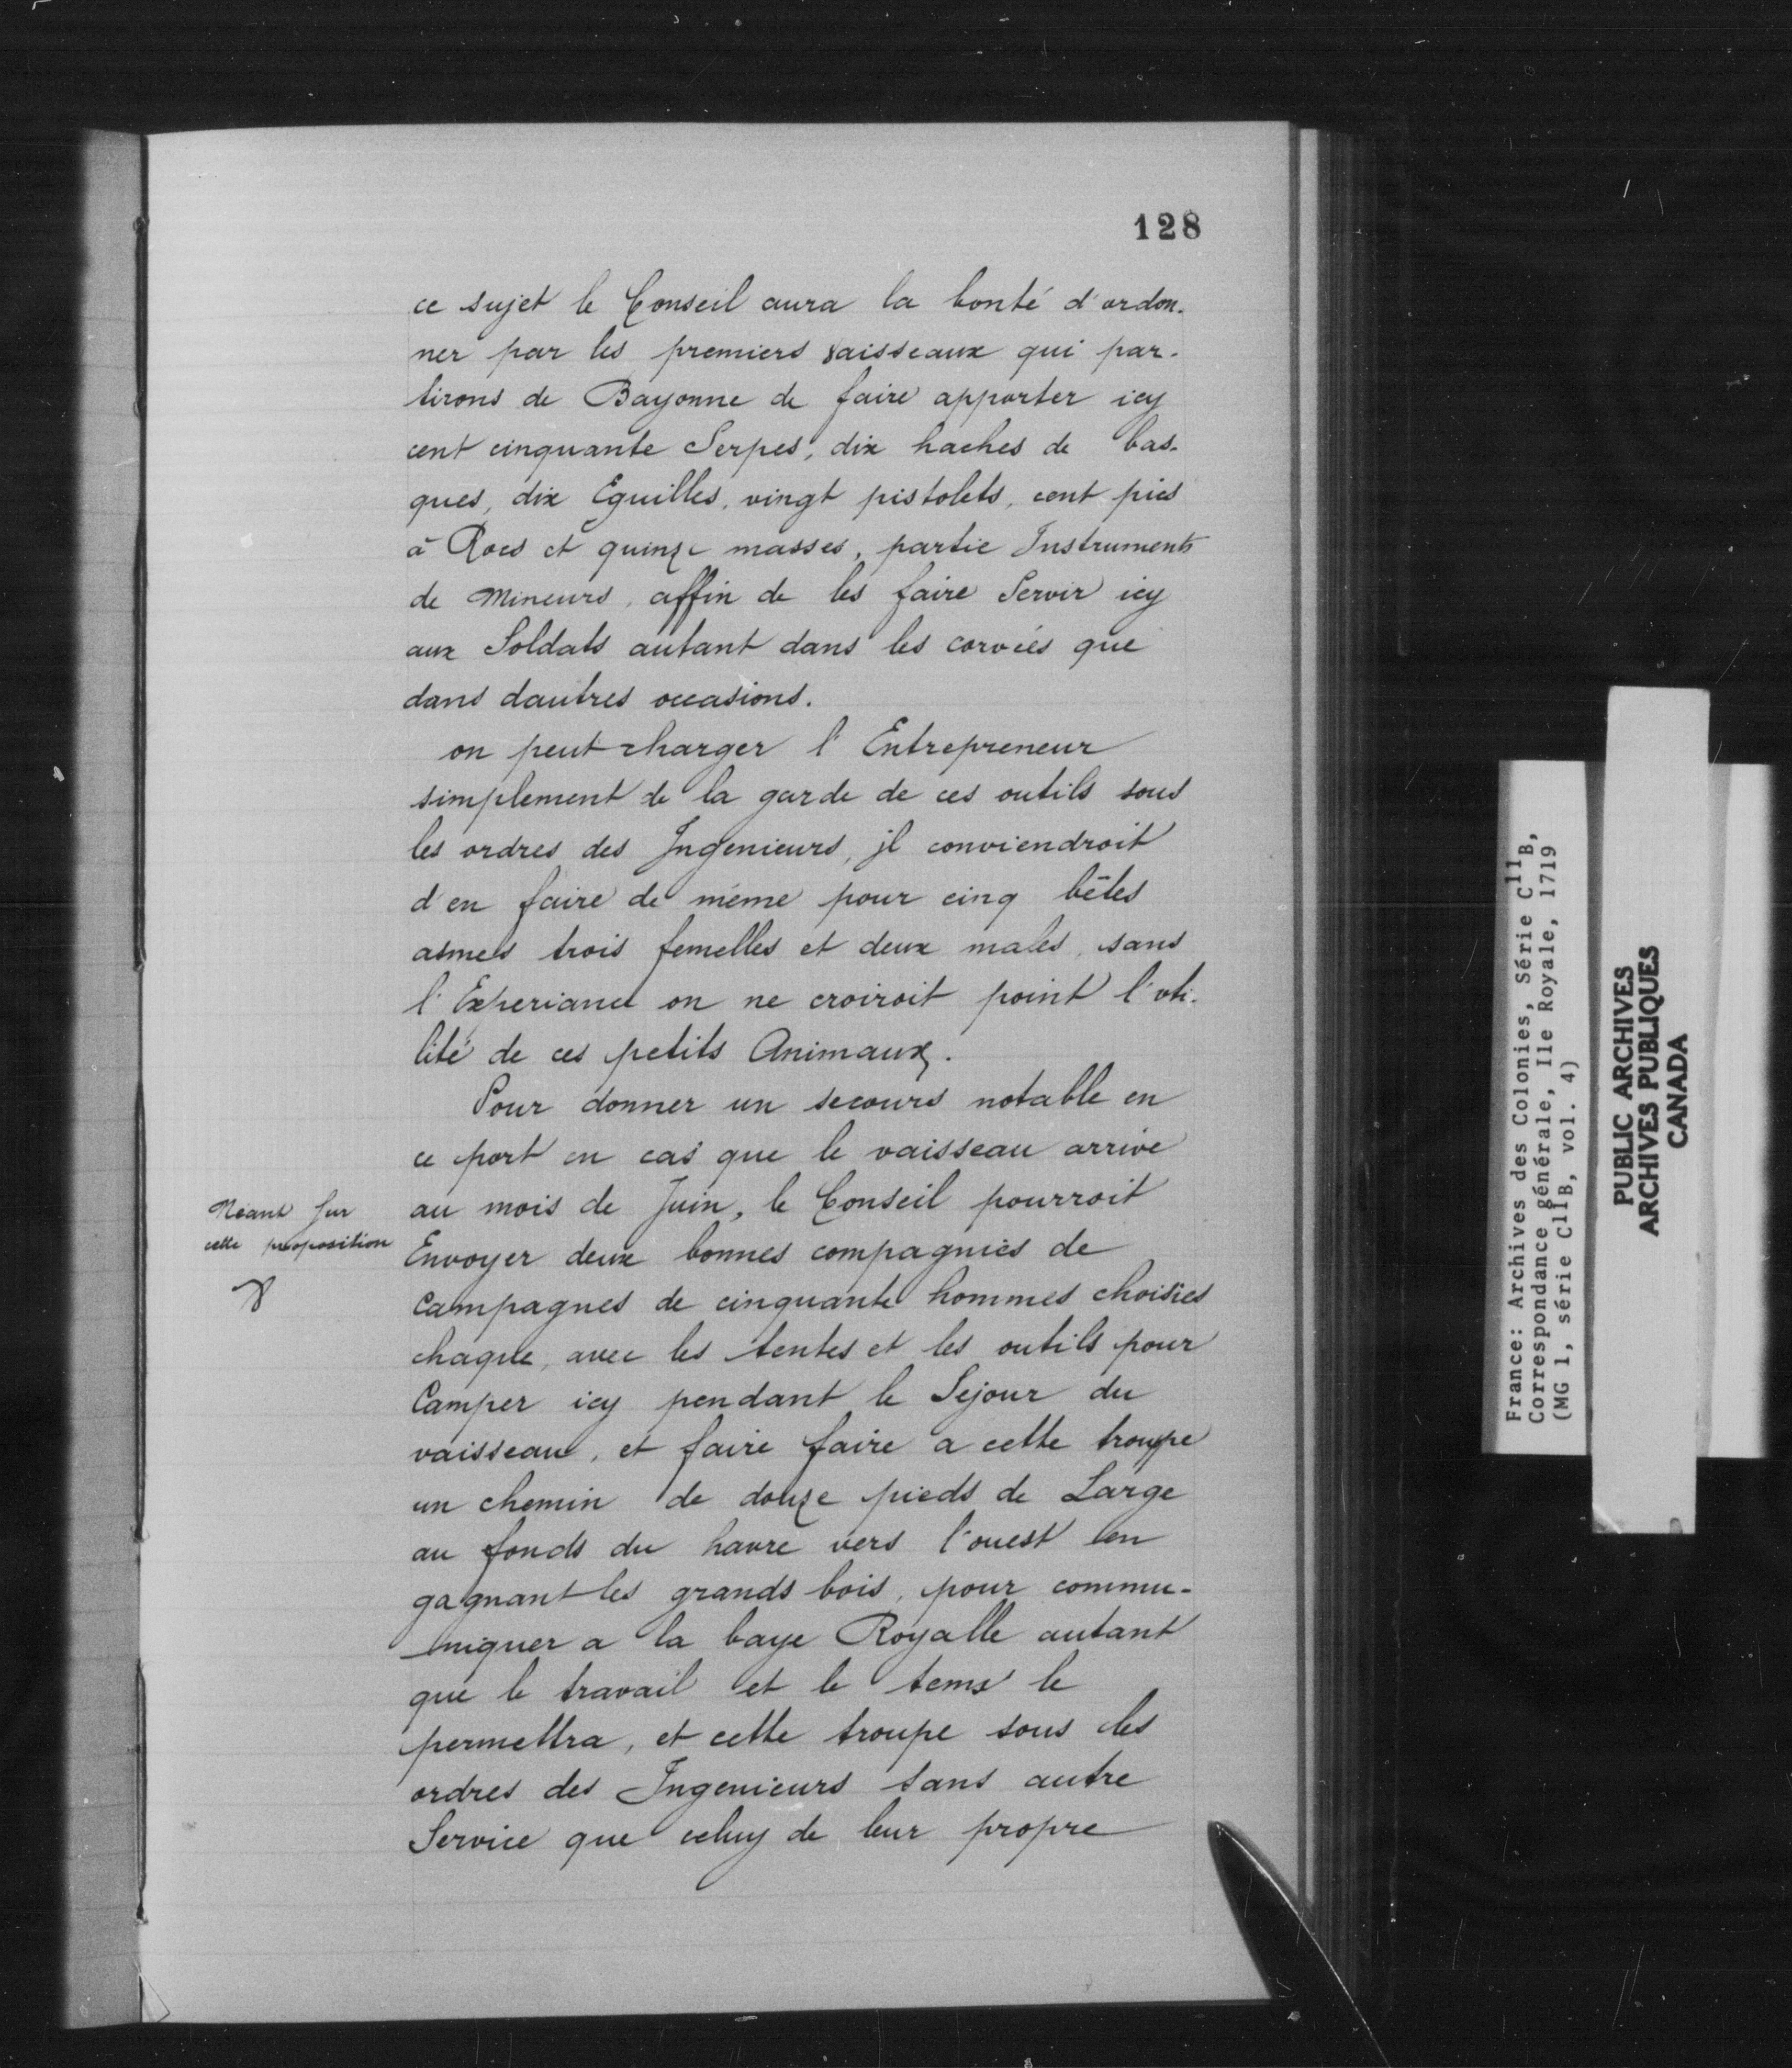 128
ce sujet le Conseil aura la bonté d'ordon-
ner par les premiers vaisseaux qui par-
tirons de Bayonne de faire apporter icy
cent cinquante Serpes, dix haches de bas-
ques, dix Eguilles, vingt pistolets, cent pics
à Rocs et quinze masses, partie Instruments
de Mineurs, affin de les faire Servir icy
aux Soldats autant dans les corvées que
dans dautres occasions.
on peut charger l'Entrepreneur
simplement de la garde de ces outils sous
les ordres des Ingenieurs, jl conviendroit
d'en faire de même pour cinq bêtes
asmes trois femelles et deux males, sans
l'Experiance on ne croiroit point l'uti-
lité de ces petits Animaux.
Pour donner un secours notable en
ce port en cas que le vaisseau arrive
Néant sur
cette proposition
au mois de Juin, le Conseil pourroit
Envoyer deux bonnes compagnies de
Campagnes de cinquante hommes choisies
chaque, avec les tentes et les outils pour
Camper icy pendant le Sejour du
vaisseau, et faire faire a cette troupe
un chemin de douze pieds de Large
au fonds du havre vers l'ouest en
gagnant les grands bois, pour commu-
niquer a la baye Royalle autant
que le travail et le tems le
permettra, et cette troupe sous les
ordres des Ingenieurs sans autre
Service que celuy de leur propre
France: Archives des Colonies, Série C11B,
Correspondance générale, Ile Royale, 1719
(MG 1, série C11B, vol. 4)
PUBLIC ARCHIVES
ARCHIVES PUBLIQUES
CANADA